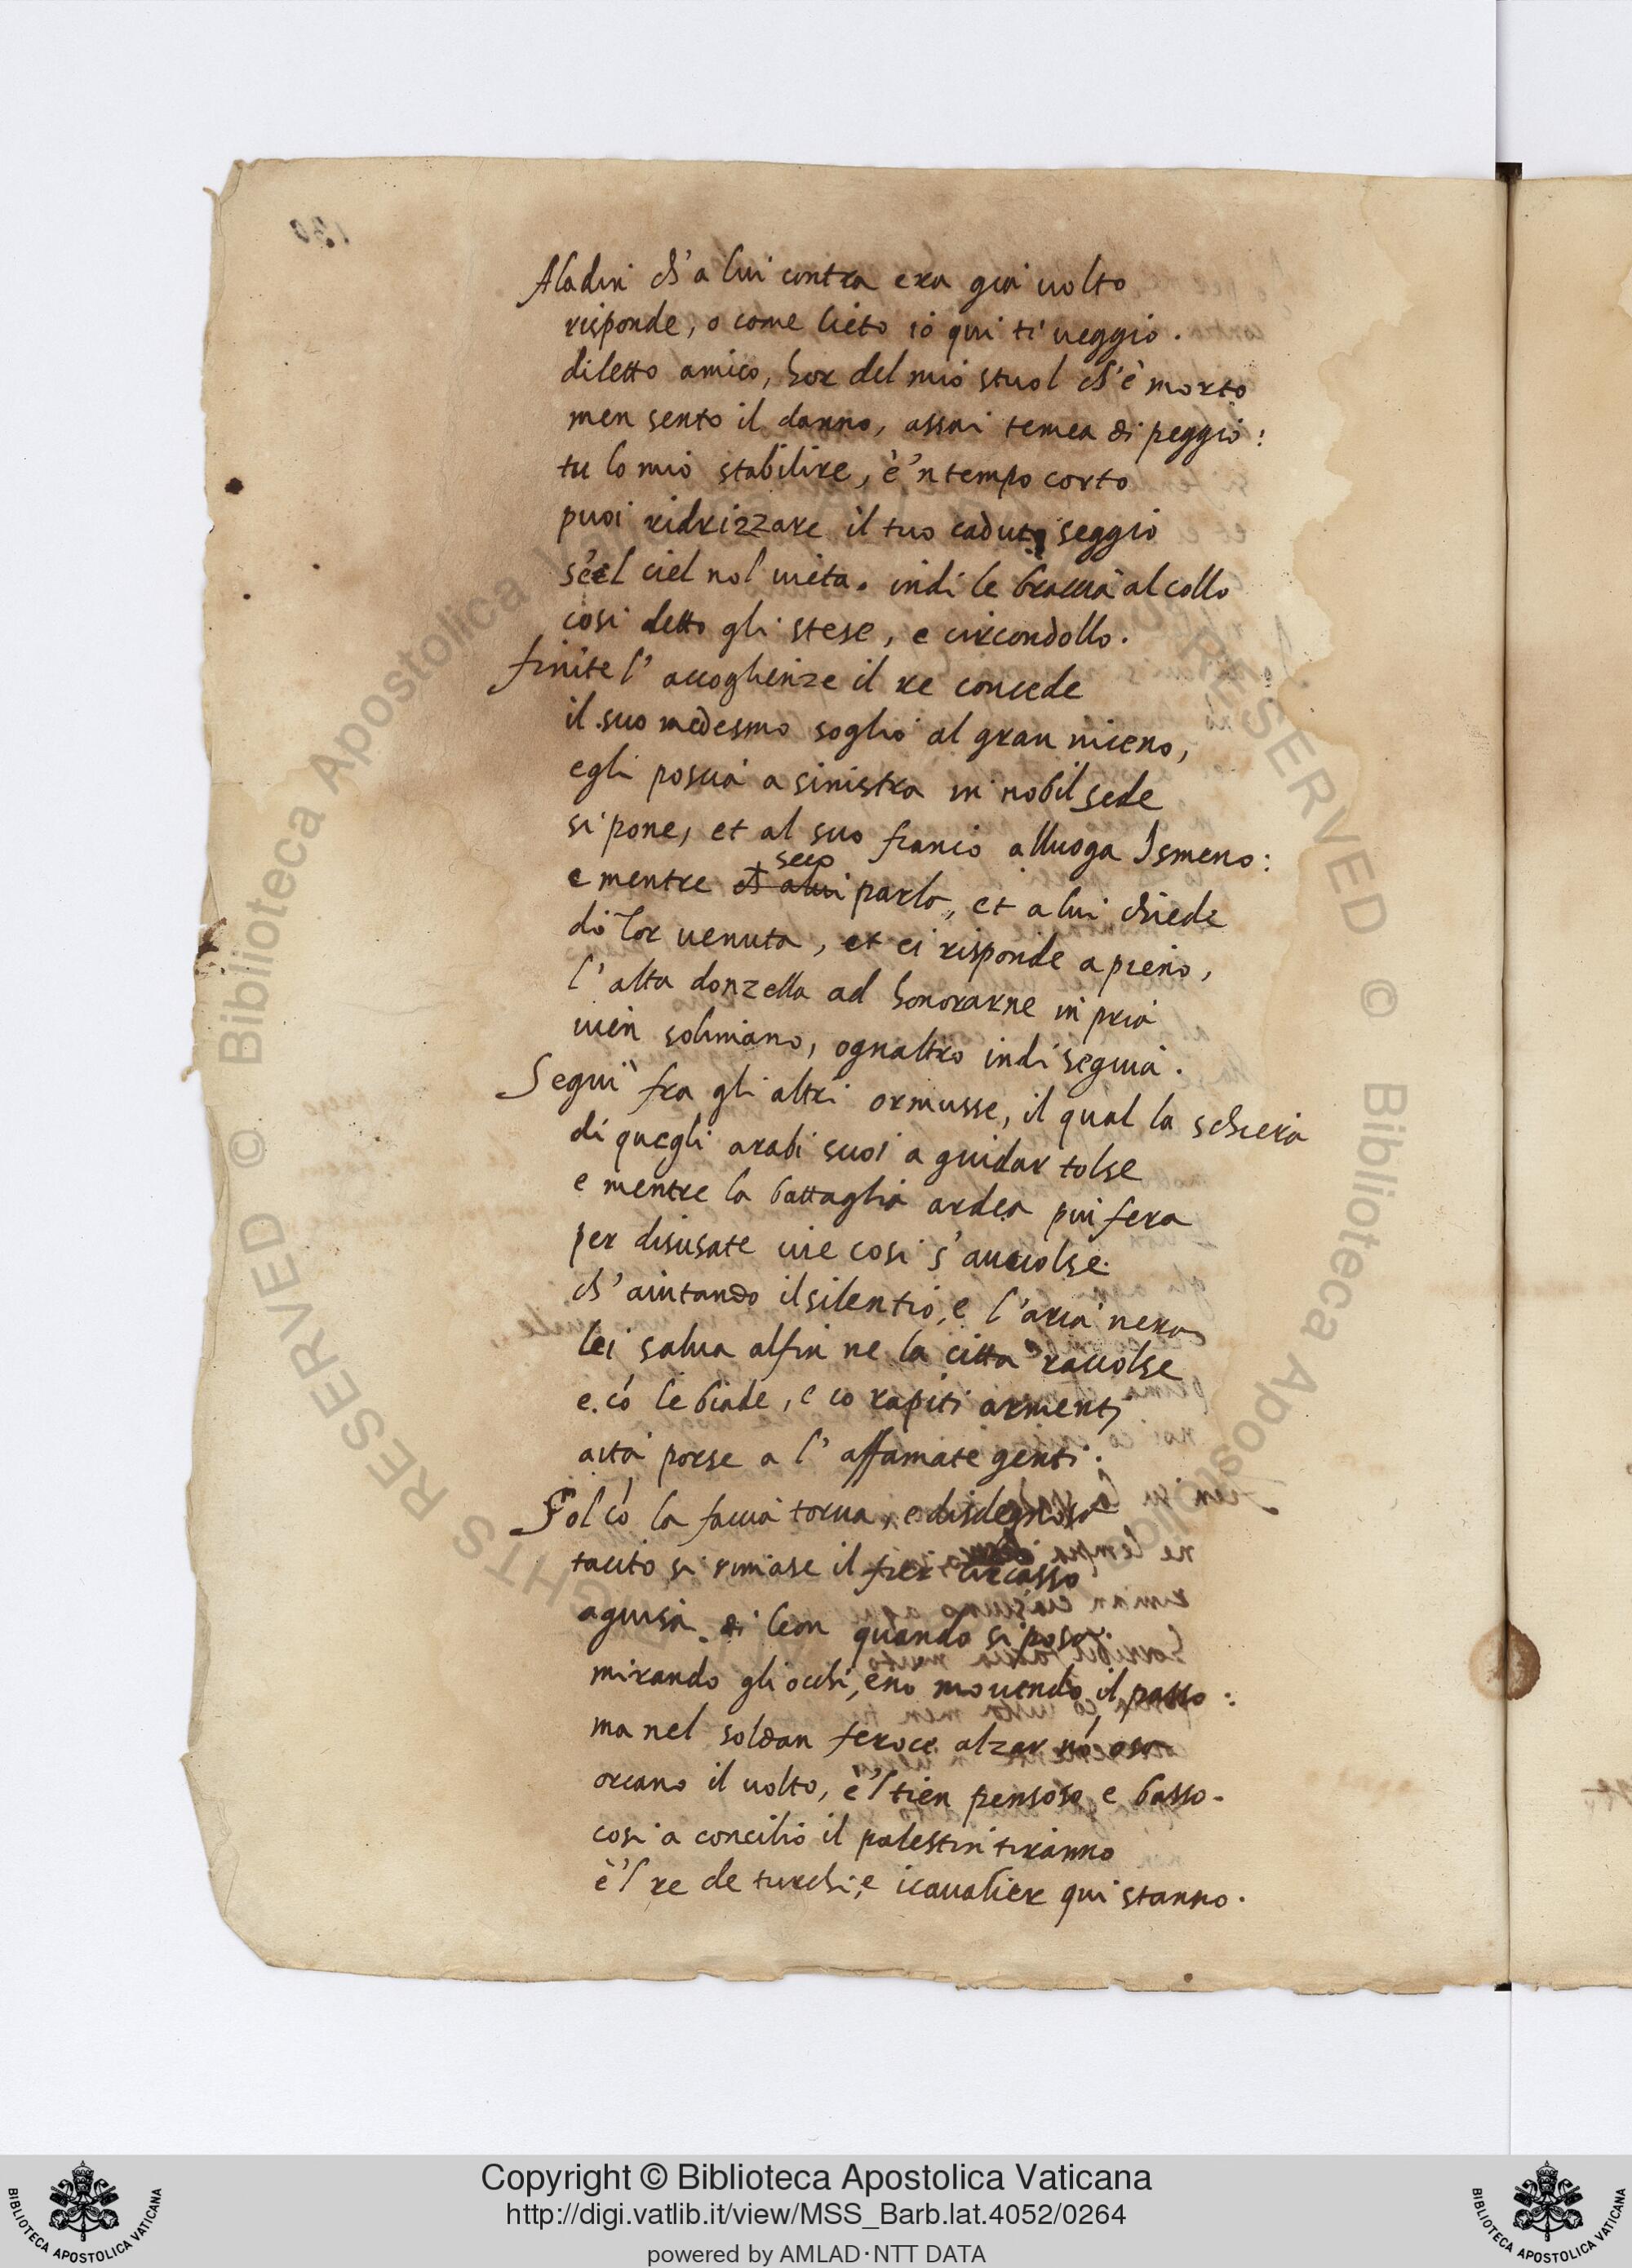 Aladin ch'a lui contra era già volto
risponde, o come lieto io qui ti veggio.
diletto amico, hor del mio stuol ch'è morto
men sento il danno, assai temea di peggio:
tu lo mio stabilire, è'n tempo corto
puoi ridrizzare il tuo caduto seggio
se'l ciel nol vieta. indi le braccia al collo
cosi detto gli stese, e circondollo.
finite l'accoglienze il re concede
il suo medesmo soglio al gran niceno,
egli poscia a sinistra in nobil sede
si pone, et al suo fianco alluoga Ismeno:
seco
e mentre ch' a lui parla, et a lui chiede
di lor venuta, et ei risponde a pieno,
l'alta donzella ad honorarne in pria
vien solimano, ognaltro indi seguia.
Seguì fra gli altri ormusse, il qual la schiera
di quegli arabi suoi a guidar tolse
e mentre la battaglia ardea piu fera
per disusate vie cosi s'avvolse.
ch'aiutando il silentio, e l'aria nera
lei salva alfin ne la citta raccolse
e có le biade, e co rapiti armenti
aita porse a l'affamate genti.
Sol có la faccia torva, e disdegnosa
tacito si rimase il fier circasso
a guisa di leon quando si posa.
mirando gli occhi, e nó movendo il passo:
ma nel soldan feroce alzar nó osa
orcano il volto, è'l tien pensoso e basso.
cosi a concilio il palestin tiranno
è'l re de turchi, e i cavalier qui stanno.
130
RIGHTS RESERVED © Biblioteca Apostolica Vaticana
RESERVED © Biblioteca Apostolica
Copyright © Biblioteca Apostolica Vaticana
http://digi.vatlib.it/view/MSS_Barb.lat.4052/0264
powered by AMLAD·NTT DATA
BIBLIOTECA APOSTOLICA VATICANA
BIBLIOTECA APOSTOLICA VATICANA